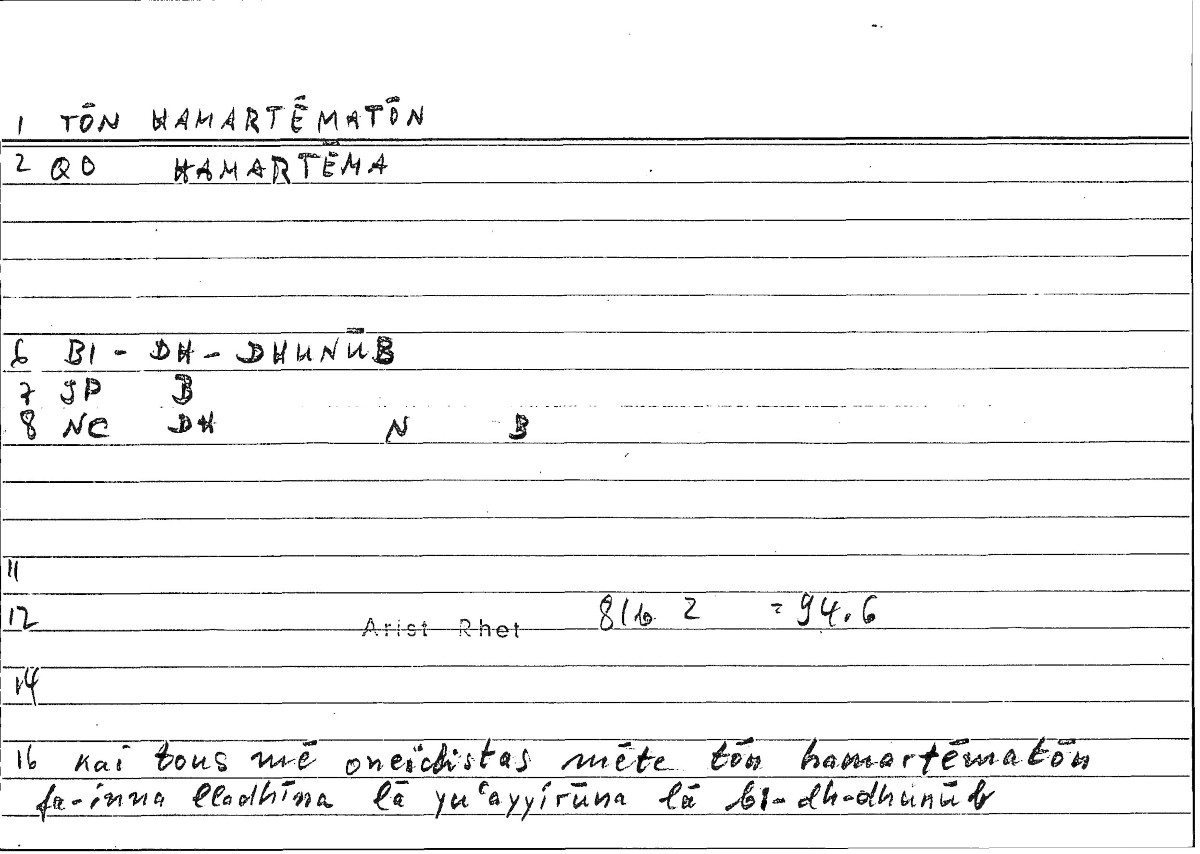 1 TŌN HAMARTĒMATŌN
2 QD HAMARTĒMA
6 BI - DH - DHUNŪB
7 JP B
8 NC DH N B
11
12 Arist Rhet 81b 2 = 94.6
14
16 kai tous mē oneidistas mēte tōn hamartēmatōn
fa-inna lladhīna lā yuʿayyirūna lā bi-dh-dhunūb